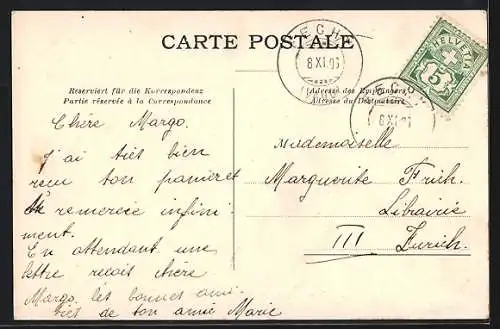 CARTE POSTALE
HELVETIA
5
8 XI.06
8 XI
Reserviert für die Korrespondenz
Partie réservée à la Correspondance
Adresse des Empfängers
Adresse du Destinataire
Chère Margo.
J'ai très bien
reçu ton panier et
te remercie infini-
ment.
En attendant une
lettre reçois chère
Margo, les bonnes ami-
tiés de ton amie Marie
Mademoiselle
Marguerite Frich.
Librairie
III Zurich.